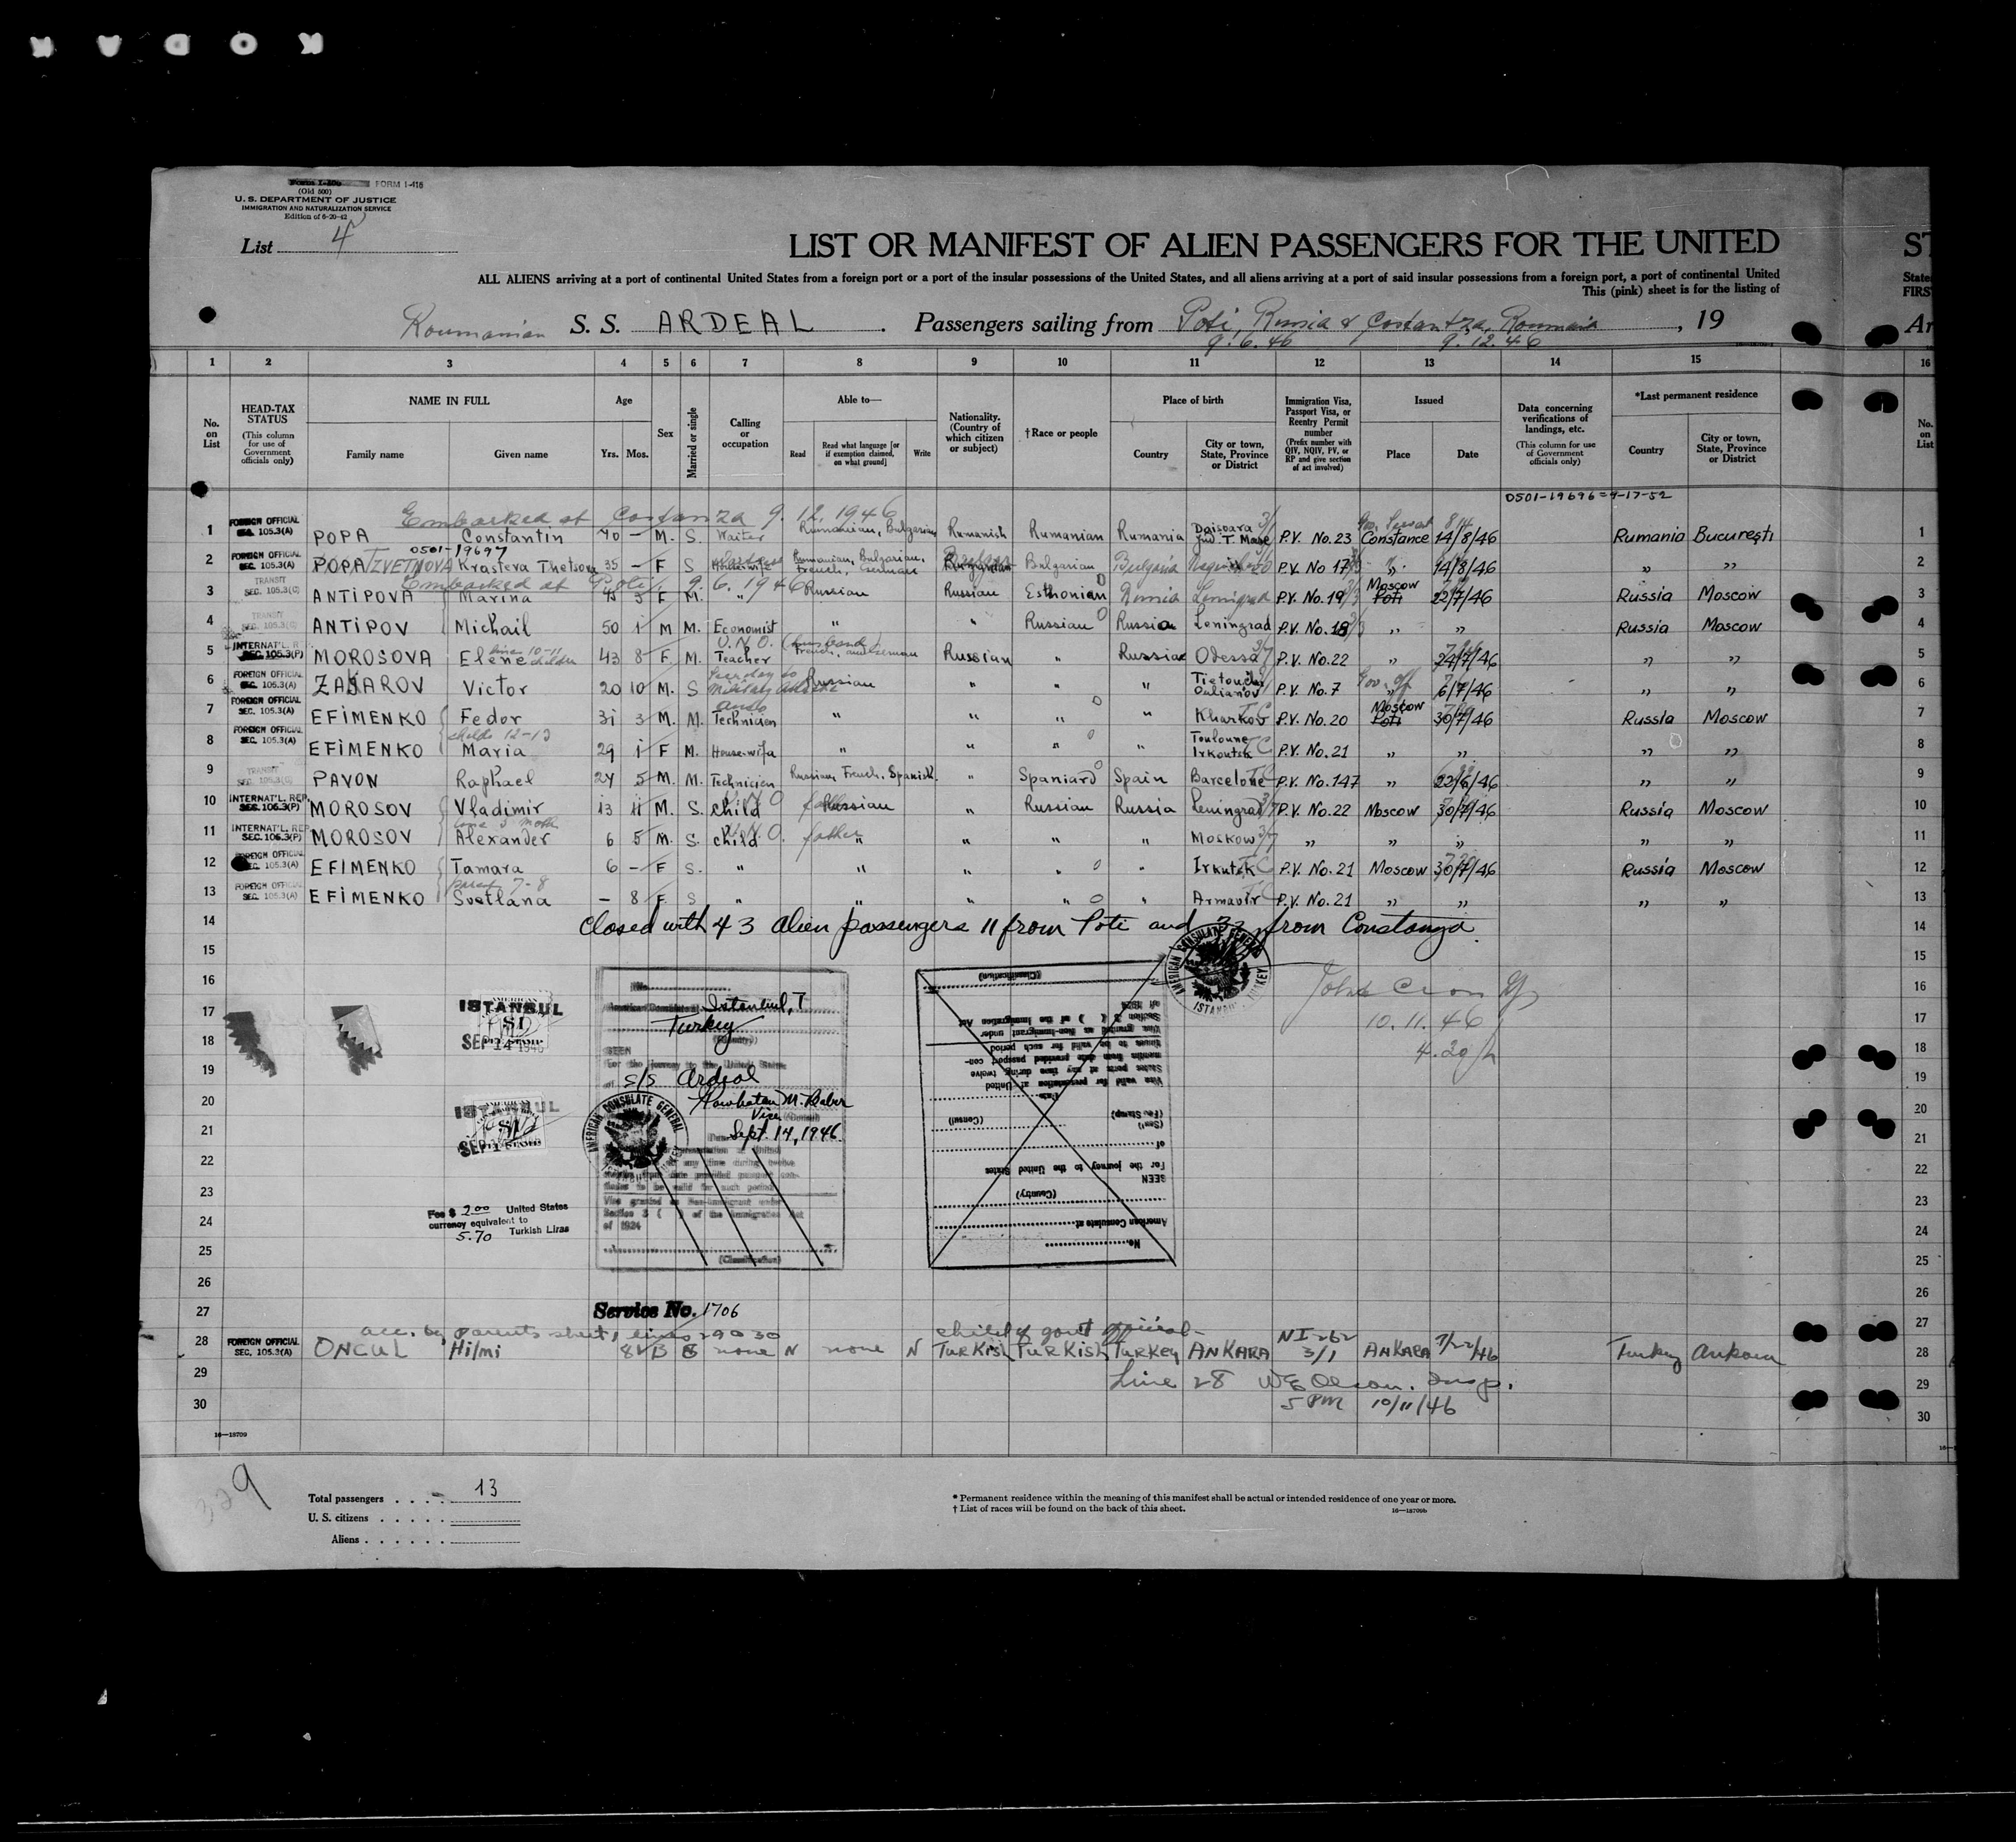 KODAK
Form I-400 FORM I-416
(Old 500)
U. S. DEPARTMENT OF JUSTICE
IMMIGRATION AND NATURALIZATION SERVICE
Edition of 6-20-42
List 4
LIST OR MANIFEST OF ALIEN PASSENGERS FOR THE UNITED ST
ALL ALIENS arriving at a port of continental United States from a foreign port or a port of the insular possessions of the United States, and all aliens arriving at a port of said insular possessions from a foreign port, a port of continental United State
This (pink) sheet is for the listing of FIRS
Roumanian S. S. ARDEAL . Passengers sailing from Poti, Russia & Costantza, Roumania , 19 Ar
9. 6. 46 9. 12. 46
1 2 3 4 5 6 7 8 9 10 11 12 13 14 15 16
No. on List
HEAD-TAX STATUS (This column for use of Government officials only)
NAME IN FULL Family name Given name
Age Yrs. Mos.
Sex
Married or single
Calling or occupation
Able to— Read Read what language [or if exemption claimed, on what ground] Write
Nationality. (Country of which citizen or subject)
†Race or people
Place of birth Country City or town, State, Province or District
Immigration Visa, Passport Visa, or Reentry Permit number (Prefix number with QIV, NQIV, PV, or RP and give section of act involved)
Issued Place Date
Data concerning verifications of landings, etc. (This column for use of Government officials only)
*Last permanent residence Country City or town, State, Province or District
No. on List
0501-19696=9-17-52
Embarked at Costanza 9. 12. 1946
1 FOREIGN OFFICIAL SEC. 105.3(A) POPA Constantin 40 – M. S. Waiter Rumanian, Bulgarian Rumanish Rumanian Rumania P.V. No. 23 Constance 14/8/46 Rumania Bucureşti 1
0501-19697
2 FOREIGN OFFICIAL SEC. 105.3(A) POPA TZVETNOVA Krasteva Thetsova 35 – F S House-wife Rumanian, Bulgarian, French, German Bulgarian Bulgarian Bulgaria P.V. No 17 „ 14/8/46 „ „ 2
Embarked at Poti, 9. 6. 1946
3 TRANSIT SEC. 105.3(C) ANTIPOVA Marina 45 5 F M. " Russian Russian Esthonian Russia Leningrad P.V. No. 19 Moscow Poti 22/7/46 Russia Moscow 3
4 TRANSIT SEC. 105.3(C) ANTIPOV Michail 50 1 M M. Economist " " Russian Russia Leningrad P.V. No. 18 „ „ Russia Moscow 4
5 INTERNAT'L. REP SEC. 105.3(P) MOROSOVA Elene 43 8 F. M. U.N.O. (husband) Teacher French, German Russian " Russia Odessa P.V. No. 22 „ 24/7/46 „ „ 5
6 FOREIGN OFFICIAL SEC. 105.3(A) ZAXAROV Victor 20 10 M. S Russian " " " P.V. No. 7 „ 6/7/46 „ „ 6
7 FOREIGN OFFICIAL SEC. 105.3(A) EFIMENKO Fedor 31 3 M. M. Technicien " " " " Kharkov P.V. No. 20 Moscow Poti 30/7/46 Russia Moscow 7
childs 12-13
8 FOREIGN OFFICIAL SEC. 105.3(A) EFIMENKO Maria 29 1 F M. House-wife " " " " Touloune Irkoutsk P.V. No. 21 „ „ „ „ 8
9 TRANSIT SEC. 105.3(C) PAVON Raphael 24 5 M. M. Technicien Russian, French, Spanish. " Spaniard Spain Barcelone P.V. No. 147 „ 22/6/46 „ „ 9
10 INTERNAT'L. REP SEC. 105.3(P) MOROSOV Vladimir 13 11 M. S. child Russian " Russian Russia Leningrad P.V. No. 22 Moscow 30/7/46 Russia Moscow 10
11 INTERNAT'L. REP SEC. 105.3(P) MOROSOV Alexander 6 5 M. S. child father " " " " Moskow „ „ „ „ „ 11
12 FOREIGN OFFICIAL SEC. 105.3(A) EFIMENKO Tamara 6 – F S. " " " " " Irkutsk P.V. No. 21 Moscow 30/7/46 Russia Moscow 12
13 FOREIGN OFFICIAL SEC. 105.3(A) EFIMENKO Svetlana – 8 F. S " " " " " Armavir P.V. No. 21 „ „ „ „ 13
14 closed with 43 alien passengers 11 from Poti and 32 from Constanza. 14
15 15
16 16
17 17
18 18
19 19
20 20
21 21
22 22
23 23
24 24
25 25
26 26
27 27
AMERICAN CONSULATE GENERAL ISTANBUL TURKEY
10. 11. 46
4.20 p
ISTANBUL
SEP 14 1946
ISTANBUL
SEP 1
Fee $ 2.00 United States
currency equivalent to
5.70 Turkish Liras
No.
American Consulate at Istanbul, T
Turkey
(Country)
SEEN
For the journey to the United States
of S/S Ardeal
Powhatan M. Baber
Vice Consul
Sept. 14, 1946
AMERICAN CONSULATE GENERAL
Visa granted as Non-Immigrant under
Section 3 ( ) of the Immigration Act
of 1924
(Classification)
No.
American Consulate at
(Country)
SEEN
For the journey to the United States
of
(Seal) (Consul)
(Fee Stamp)
Date
Visa valid for presentation at United
States ports at any time during twelve
months from date provided passport con-
tinues to be valid for such period
Visa granted as Non-Immigrant under
Section 3 ( ) of the Immigration Act
of 1924
(Classification)
Service No. 1706
acc. by parents sheet 1 lines 29 & 30 child of govt official
28 FOREIGN OFFICIAL SEC. 105.3(A) ONCUL Hilmi 8 none N none N Turkish Turkish Turkey ANKARA NI 262 3/1 ANKARA 7/22/46 Turkey Ankara 28
29 Line 28 W E Olson. Insp. 29
30 5 PM 10/11/46 30
16—18709
329
Total passengers . . . . 13
U. S. citizens . . . . .
Aliens . . . . . .
* Permanent residence within the meaning of this manifest shall be actual or intended residence of one year or more.
† List of races will be found on the back of this sheet. 16—18709b